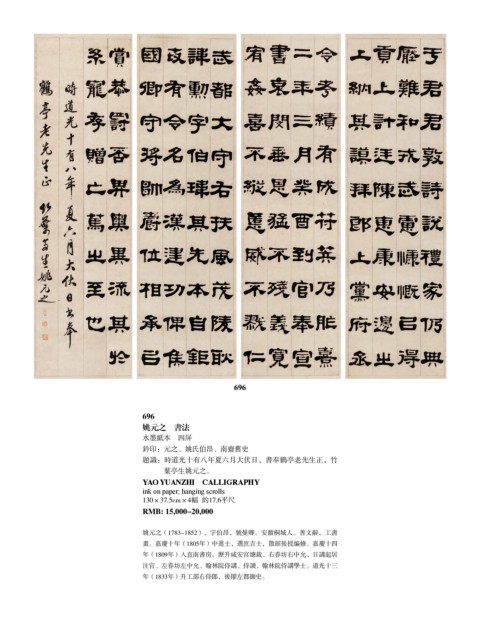 于君君敦詩說禮家仍典
壓難和戎武慮慷慨以得
貢上計廷陳惠康安邊之
上納其謨拜郎上黨府丞
令考績有成符英乃胙熹
二年三月癸酉到官奉宣
書哀閔垂恩猛不殘義寬
宥姦喜不縱慝威不戮仁
武都大守右扶風茂陵耿
諱勳字伯瑋其先本自鉅
政有令名為漢建功俾侯
國卿守將帥爵位相承以
賞恭罰否畀奧異流其於
系寵存贈亡篤之至也
時道光十有八年夏六月大伏日書奉
鶴亭老先生正 竹葉亭生姚元之
696
696
姚元之　書法
水墨紙本　四屏
鈐印：元之、姚氏伯昂、南齋舊史
題識：時道光十有八年夏六月大伏日，書奉鶴亭老先生正，竹
葉亭生姚元之。
YAO YUANZHI　CALLIGRAPHY
ink on paper; hanging scrolls
130 × 37.5cm × 4幅　約17.6平尺
RMB: 15,000–20,000
姚元之（1783–1852），字伯昂，號薦卿，安徽桐城人。善文辭，工書
畫。嘉慶十年（1805年）中進士，選庶吉士，散館後授編修。嘉慶十四
年（1809年）入直南書房。歷升咸安宮總裁、右春坊右中允、日講起居
注官、左春坊左中允、翰林院侍講、侍讀、翰林院侍講學士。道光十三
年（1833年）升工部右侍郎，後擢左都御史。